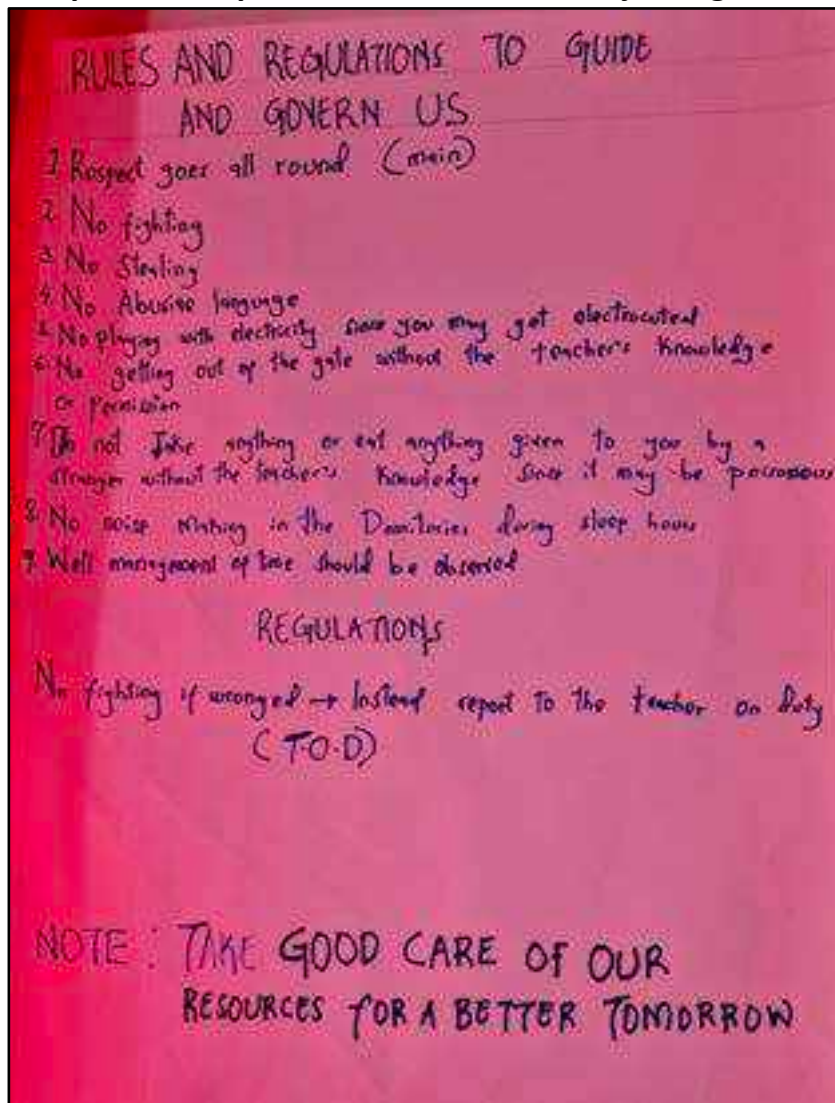 RULES AND REGULATIONS TO GUIDE
AND GOVERN US
1. Respect goes all round (main)
2. No fighting
3. No Stealing
4. No Abusive language
5. No playing with electricity since you may get electrocuted
6. No getting out of the gate without the teacher's Knowledge
or Permission
7. Do not Take anything or eat anything given to you by a
stranger without the teacher's Knowledge since it may be
8. No noise Making in the during sleep hours
9. Well management of time should be observed
REGULATIONS
No fighting if wronged → Instead report to the teacher on duty
(T.O.D)
NOTE: TAKE GOOD CARE OF OUR
RESOURCES FOR A BETTER TOMORROW